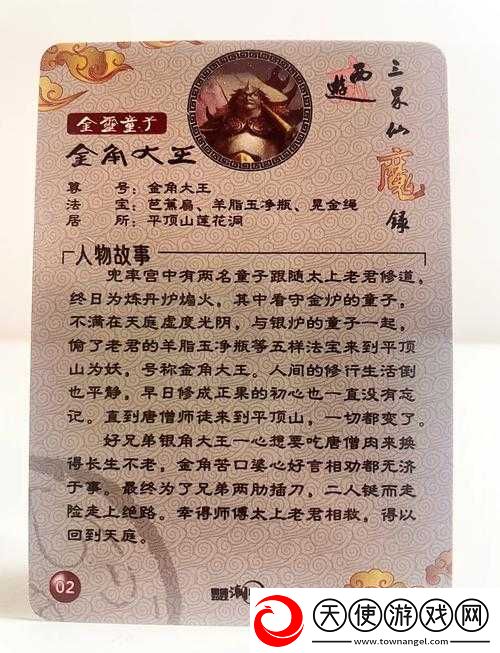 西遊
三界仙魔録
金靈童子
金角大王
尊　　号：金角大王
法　　宝：芭蕉扇、羊脂玉净瓶、晃金绳
居　　所：平顶山莲花洞
人物故事
兜率宫中有两名童子跟随太上老君修道，
终日为炼丹炉煽火，其中看守金炉的童子，
不满在天庭虚度光阴，与银炉的童子一起，
偷了老君的羊脂玉净瓶等五样法宝来到平顶
山为妖，号称金角大王。人间的修行生活倒
也平静，早日修成正果的初心也一直没有忘
记。直到唐僧师徒来到平顶山，一切都变了。
好兄弟银角大王一心想要吃唐僧肉来换
得长生不老，金角苦口婆心好言相劝都无济
于事。最终为了兄弟两肋插刀，二人铤而走
险走上绝路。幸得师傅太上老君相救，得以
回到天庭。
02
天使游戏网
www.townangel.com